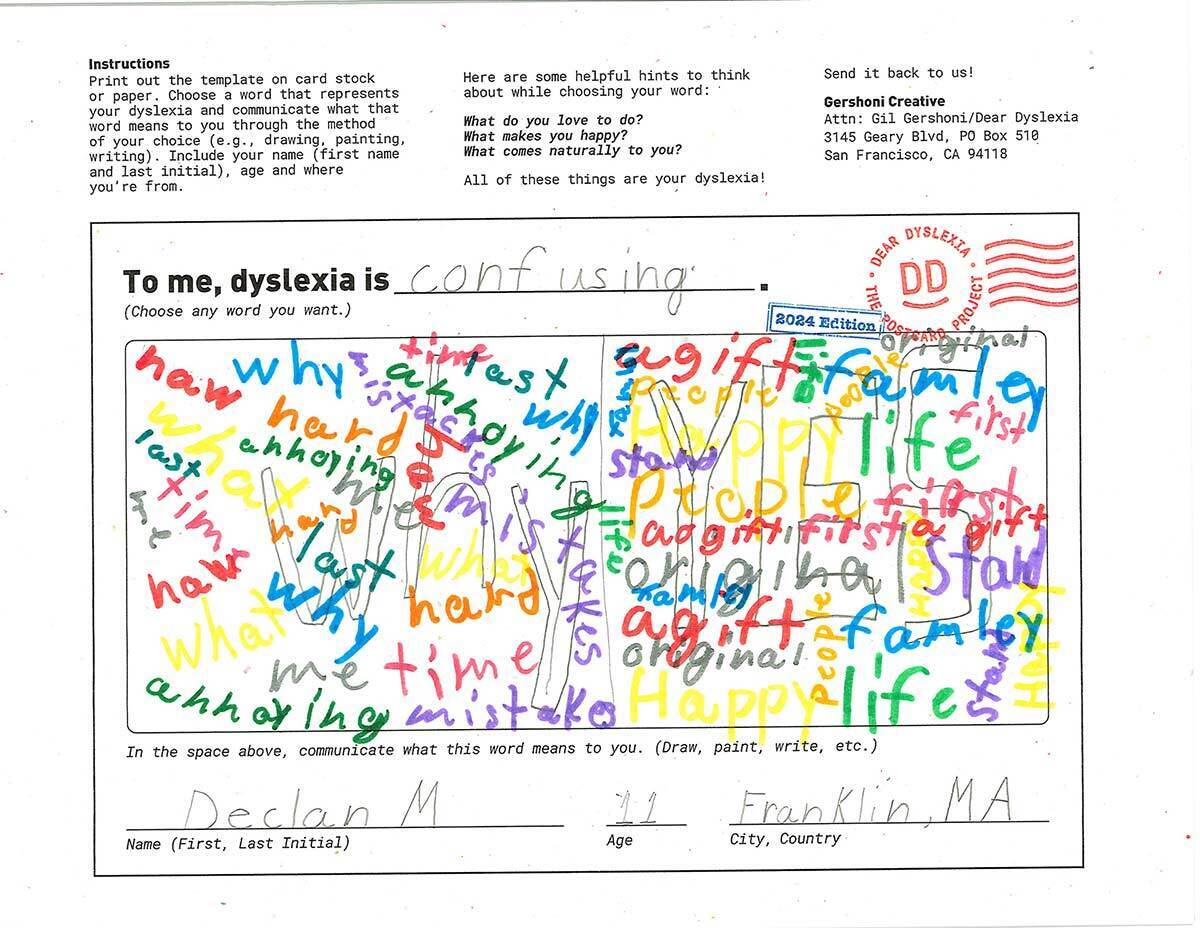 Instructions
Print out the template on card stock
or paper. Choose a word that represents
your dyslexia and communicate what that
word means to you through the method
of your choice (e.g., drawing, painting,
writing). Include your name (first name
and last initial), age and where
you're from.
Here are some helpful hints to think
about while choosing your word:
What do you love to do?
What makes you happy?
What comes naturally to you?
All of these things are your dyslexia!
Send it back to us!
Gershoni Creative
Attn: Gil Gershoni/Dear Dyslexia
3145 Geary Blvd, PO Box 510
San Francisco, CA 94118
To me, dyslexia is confusing.
(Choose any word you want.)
DEAR DYSLEXIA
DD
THE POSTCARD PROJECT
2024 Edition
haw
why
mistackes
time
annoying
last
what
hard
haw
why
last
annoying
time
me
me
hard
mistakes
last
what
haw
why
hard
what
me
time
annoying
mistakes
original
famley
a gift
life
people
famley
people
Happy
life
first
stand
People
first
life
a gift
first
a gift
Happy
original
Stand
famley
a gift
people
famley
original
stand
Happy
Happy
life
In the space above, communicate what this word means to you. (Draw, paint, write, etc.)
Declan M
11
Franklin, MA
Name (First, Last Initial)
Age
City, Country